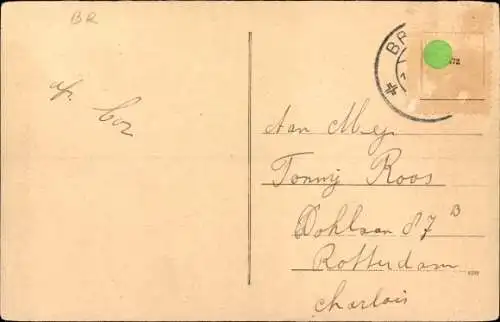 BR
BR
Aan Mej
Tonny Roos
Dohlaan 87 B
Rotterdam
Charlois